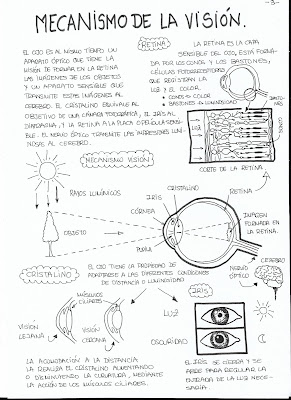 -3-
MECANISMO DE LA VISIÓN.
EL OJO ES AL MISMO TIEMPO UN
APARATO ÓPTICO QUE TIENE LA
MISIÓN DE FORMAR EN LA RETINA
LAS IMÁGENES DE LOS OBJETOS
Y UN APARATO SENSIBLE QUE
TRANSMITE ESTAS IMÁGENES AL
CEREBRO. EL CRISTALINO EQUIVALE AL
OBJETIVO DE UNA CÁMARA FOTOGRÁFICA, EL IRIS AL
DIAFRAGMA, Y LA RETINA A LA PLACA O PELÍCULA SENSI-
BLE. EL NERVIO ÓPTICO TRAMITE LAS IMPRESIONES LUMI-
NOSAS AL CEREBRO.
RETINA
LA RETINA ES LA CAPA
SENSIBLE DEL OJO, ESTÁ FORMA-
DA POR LOS CONOS Y LOS BASTONES,
CÉLULAS FOTORRECEPTORAS
QUE REGISTRAN LA
LUZ Y EL COLOR.
CONOS → COLOR
BASTONES → LUMINOSIDAD
LUZ
CORTE DE LA RETINA
MECANISMO VISIÓN
RAYOS LUMÍNICOS
CRISTALINO
IRIS
RETINA
CÓRNEA
OBJETO
PUPILA
IMAGEN
FORMADA EN
LA RETINA.
CEREBRO
NERVIO
ÓPTICO
CRISTALINO
EL OJO TIENE LA PROPIEDAD DE
ADAPTARSE A LAS DIFERENTES CONDICIONES
DE DISTANCIA O LUMINOSIDAD
IRIS
MÚSCULOS
CILIARES
VISIÓN
LEJANA
VISIÓN
CERCANA
LUZ
OSCURIDAD
LA ACOMODACIÓN A LA DISTANCIA
LA REALIZA EL CRISTALINO AUMENTANDO
O DISMINUYENDO LA CURVATURA, MEDIANTE
LA ACCIÓN DE LOS MÚSCULOS CILIARES.
EL IRIS SE CIERRA Y SE
ABRE PARA REGULAR LA
ENTRADA DE LA LUZ NECE-
SARIA